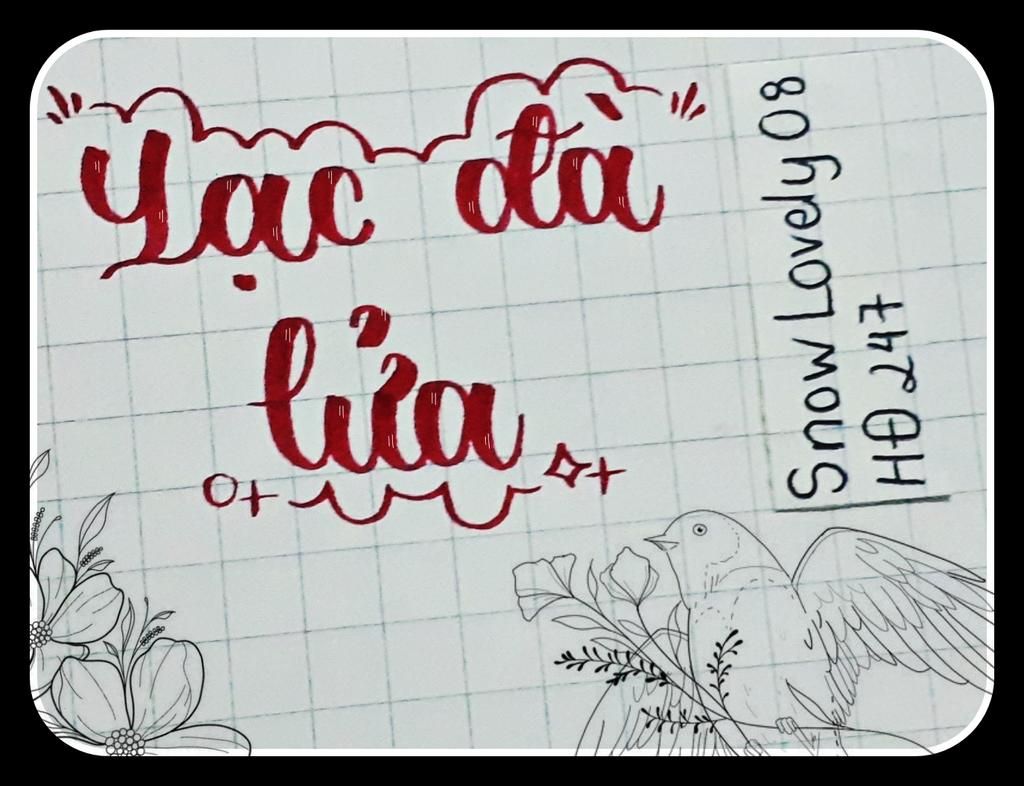 Lạc đà
lửa
Snow Lovely 08
HĐ 247